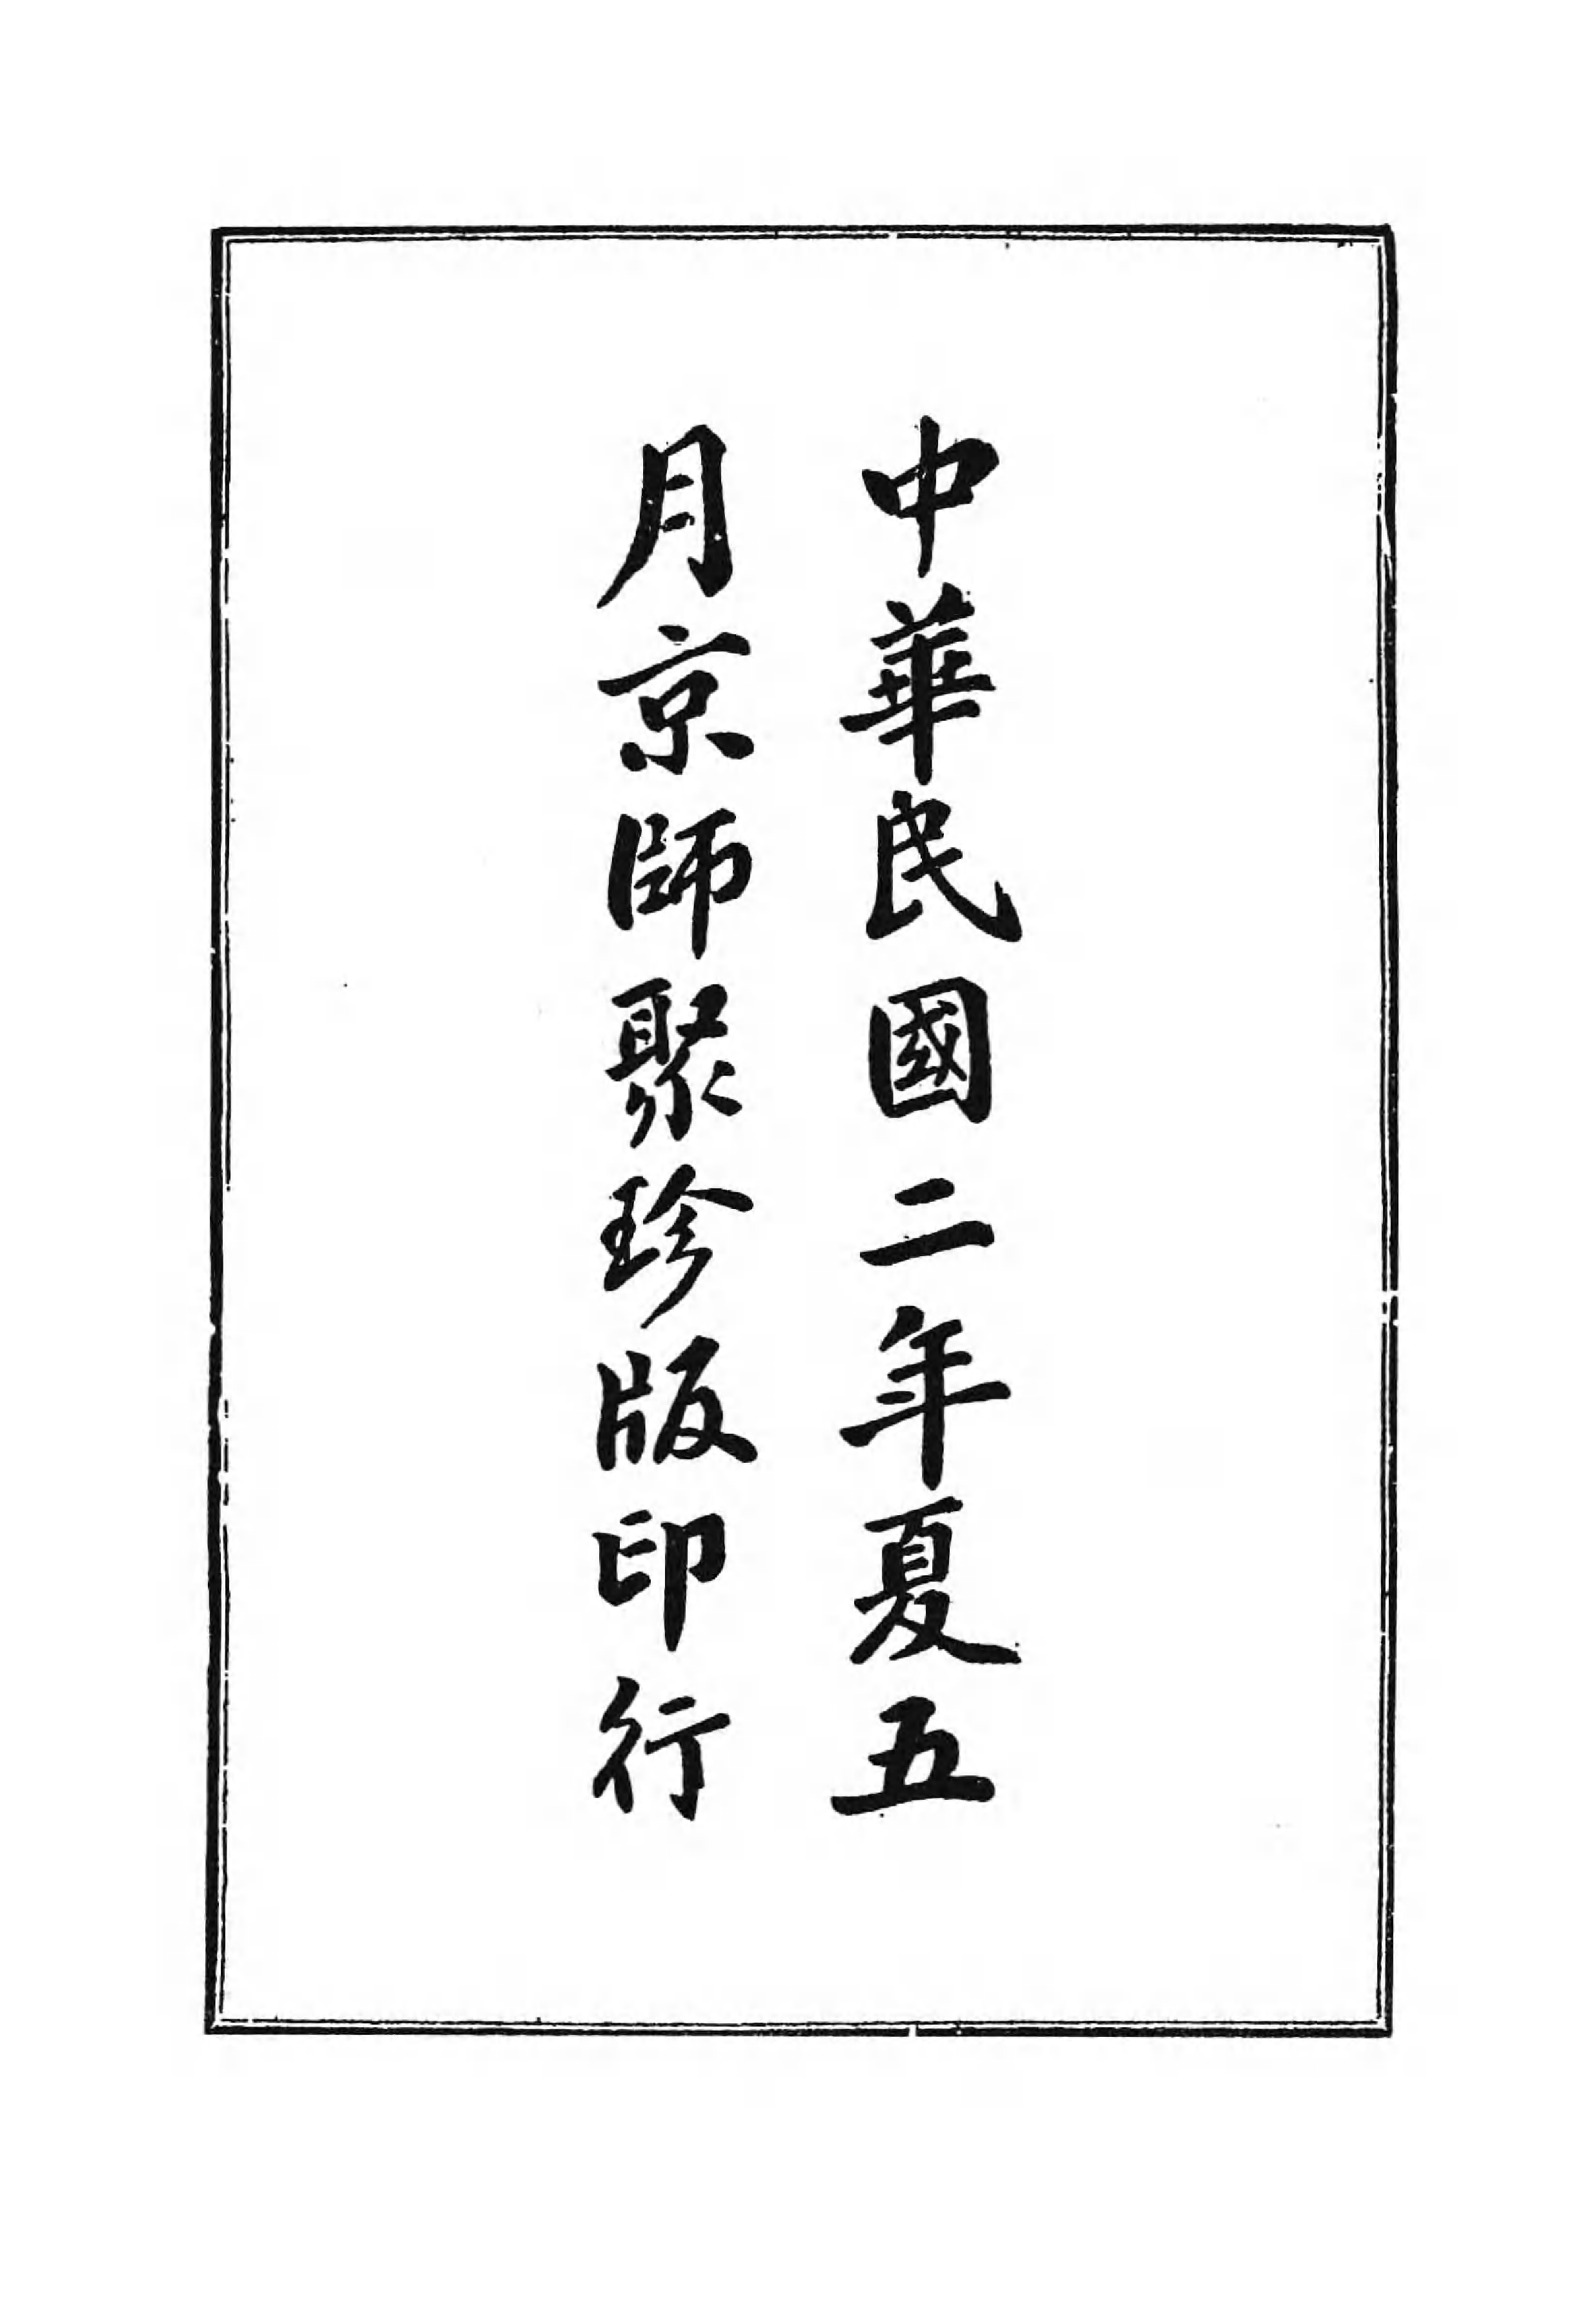 中華民國二年夏五
月京師聚珍版印行